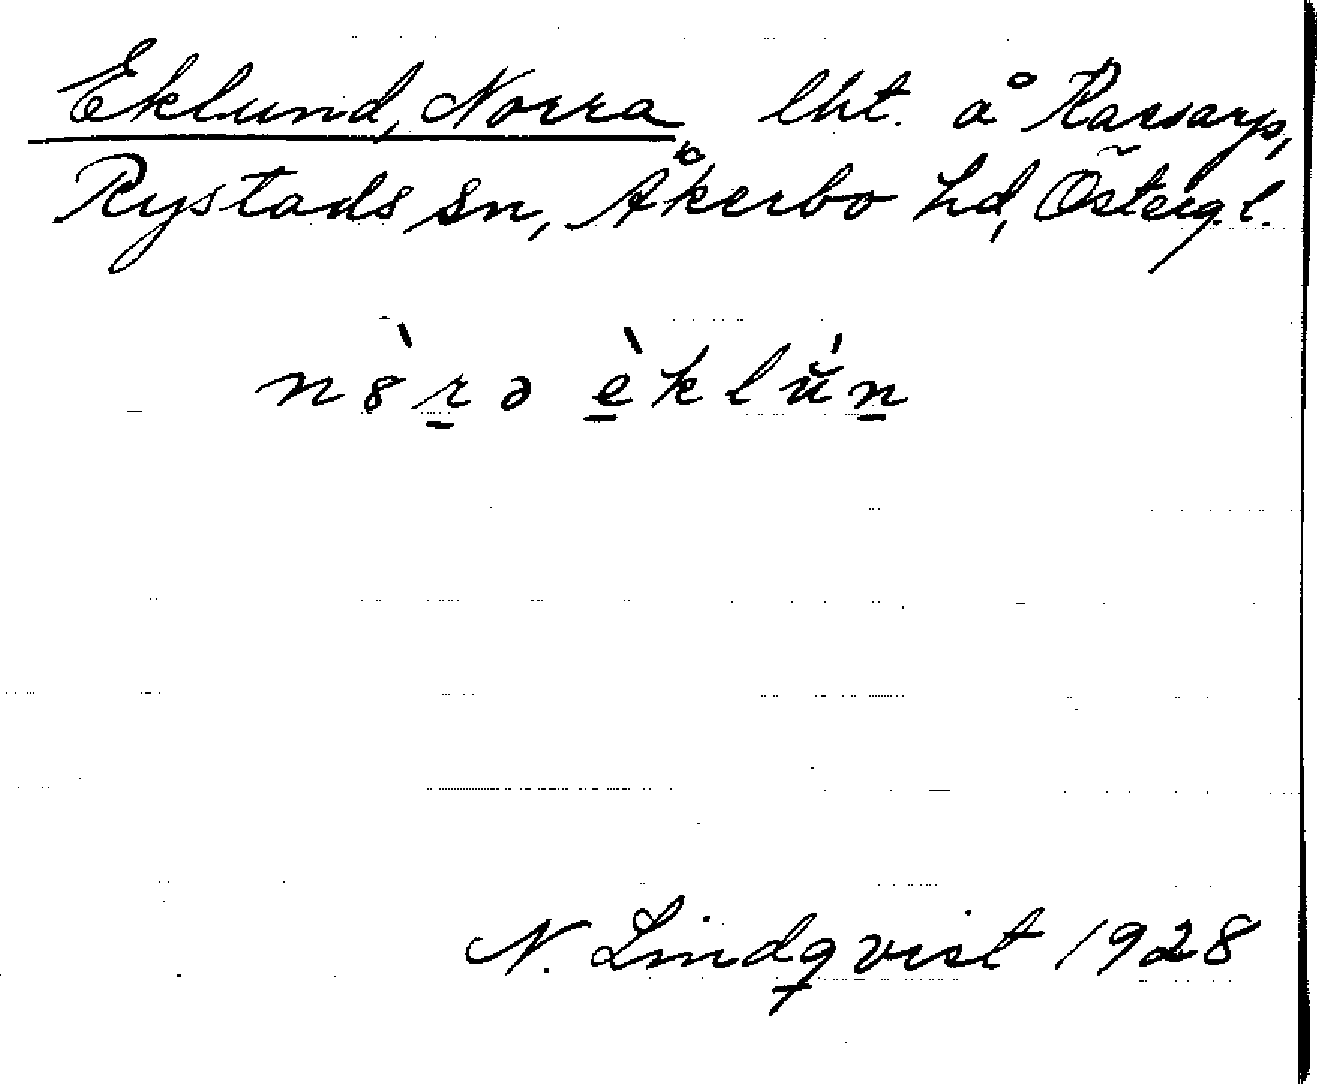 Eklund, Norra lht. å Rarsarp,
Rystads sn, Åkerbo hd, Östergl.
n8̀r̲ə è̲klǔ́n̲
N. Lindqvist 1928